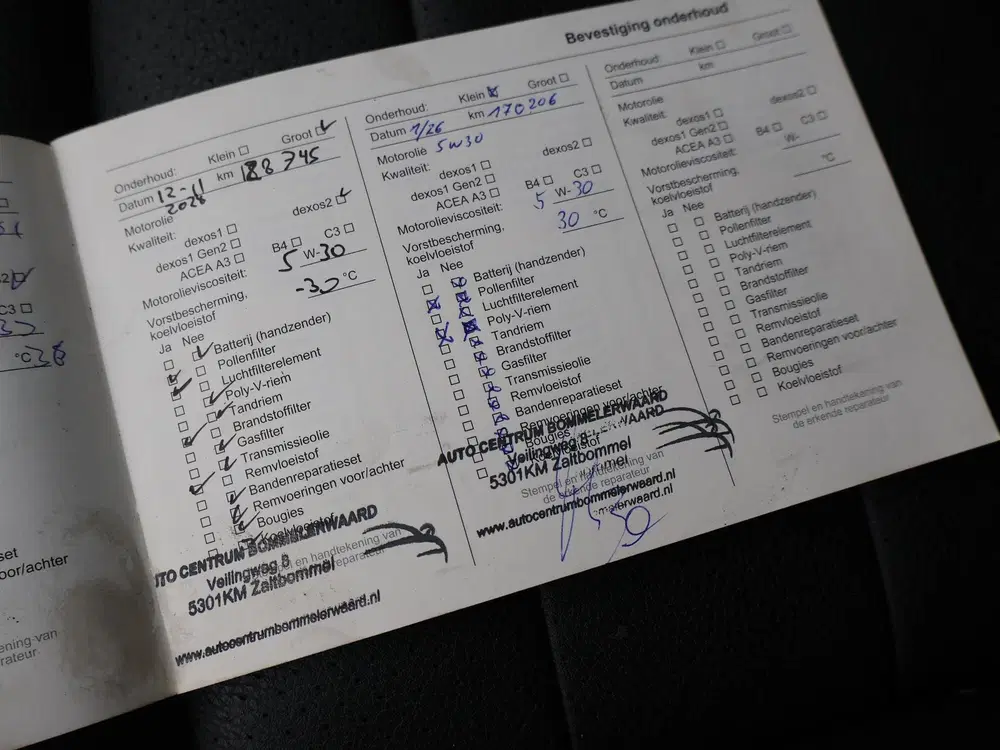 Bevestiging onderhoud
2
C3
°C
set
oor/achter
ening van
rateur
Onderhoud: Klein Groot
Datum 12-11 km 188745
Motorolie
Kwaliteit: dexos1 dexos2
dexos1 Gen2
ACEA A3 B4 C3
Motorolieviscositeit: 5 W-30
Vorstbescherming,
koelvloeistof -30 °C
Ja Nee
Batterij (handzender)
Pollenfilter
Luchtfilterelement
Poly-V-riem
Tandriem
Brandstoffilter
Gasfilter
Transmissieolie
Remvloeistof
Bandenreparatieset
Remvoeringen voor/achter
Bougies
Koelvloeistof
Stempel en handtekening van
reparateur
AUTO CENTRUM BOMMELERWAARD
Veilingweg 8
5301KM Zaltbommel
www.autocentrumbommelerwaard.nl
Onderhoud: Klein Groot
Datum 1/26 km 170206
Motorolie 5W30
Kwaliteit: dexos1 dexos2
dexos1 Gen2
ACEA A3 B4 C3
Motorolieviscositeit: 5 W-30
Vorstbescherming,
koelvloeistof 30 °C
Ja Nee
Batterij (handzender)
Pollenfilter
Luchtfilterelement
Poly-V-riem
Tandriem
Brandstoffilter
Gasfilter
Transmissieolie
Remvloeistof
Bandenreparatieset
Remvoeringen voor/achter
Bougies
AUTO CENTRUM BOMMELERWAARD
Veilingweg 8
5301KM Zaltbommel
Stempel en handtekening van
de erkende reparateur
www.autocentrumbommelerwaard.nl
Onderhoud: Klein Groot
Datum km
Motorolie
Kwaliteit: dexos1 dexos2
dexos1 Gen2
ACEA A3 B4 C3
Motorolieviscositeit: W-
Vorstbescherming,
koelvloeistof °C
Ja Nee
Batterij (handzender)
Pollenfilter
Luchtfilterelement
Poly-V-riem
Tandriem
Brandstoffilter
Gasfilter
Transmissieolie
Remvloeistof
Bandenreparatieset
Remvoeringen voor/achter
Bougies
Koelvloeistof
Stempel en handtekening van
de erkende reparateur